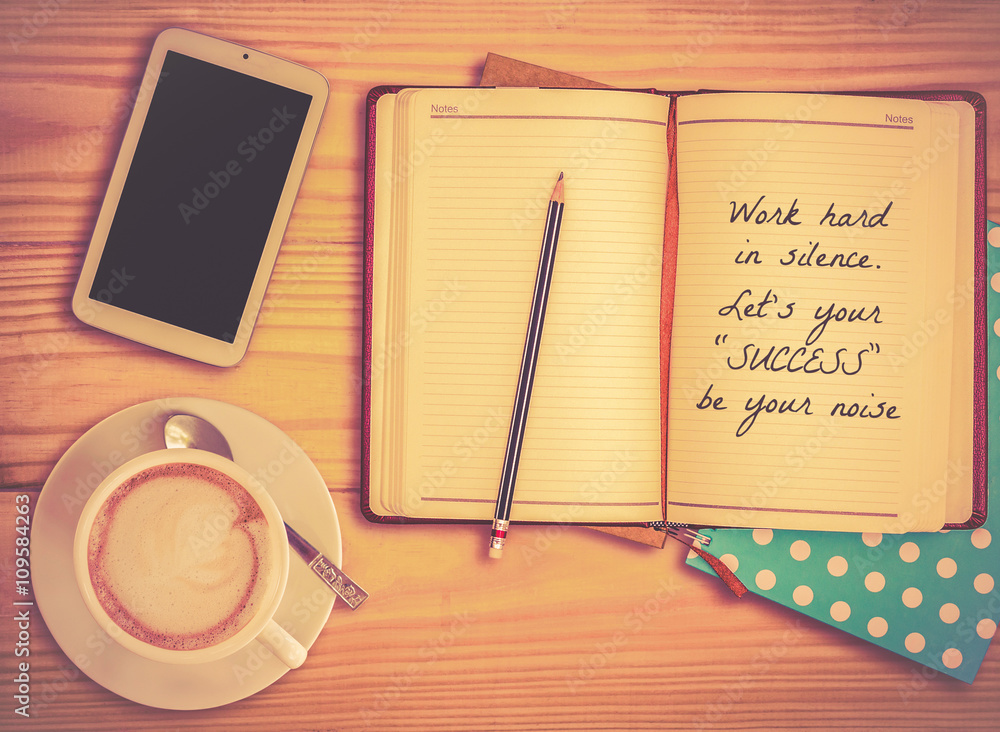 Notes
Notes
Work hard
in silence.
Let's your
"SUCCESS"
be your noise
Adobe Stock | #109584263